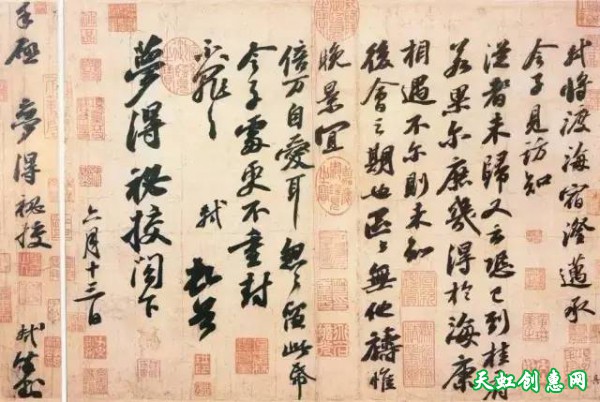 軾將渡海宿澄邁承
令子見訪知
從者未歸又云恐已到桂府
若果尔庶幾得於海康
相遇不尔則未知
後會之期也區々無他禱惟
晚景宜
倍万自愛耳忽々留此帋
令子處更不重封
不罪々 軾頓首
夢得祕校閣下
六月十三日
手啟 夢得祕校 軾
天虹创惠网